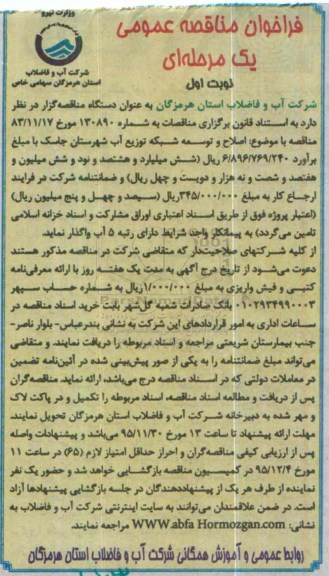 وزارت نیرو
شرکت آب و فاضلاب
استان هرمزگان سهامی خاص
فراخوان مناقصه عمومی
یک مرحله‌ای
نوبت اول
شرکت آب و فاضلاب استان هرمزگان به عنوان دستگاه مناقصه‌گزار در نظر
دارد به استناد قانون برگزاری مناقصات به شماره ۱۳۰۸۹۰ مورخ ۸۳/۱۱/۱۷
مناقصه با موضوع: اصلاح و توسعه شبکه توزیع آب شهرستان جاسک با مبلغ
برآورد ۶/۸۹۶/۷۶۹/۲۴۰ ریال (شش میلیارد و هشتصد و نود و شش میلیون و
هفتصد و شصت و نه هزار و دویست و چهل ریال) و ضمانتنامه شرکت در فرایند
ارجاع کار به مبلغ ۳۴۵/۰۰۰/۰۰۰ریال (سیصد و چهل و پنج میلیون ریال)
(اعتبار پروژه فوق از طریق اسناد اعتباری اوراق مشارکت و اسناد خزانه اسلامی
تامین می‌گردد) به پیمانکار واجد شرایط دارای رتبه ۵ آب واگذار نماید.
از کلیه شرکتهای صلاحیت‌دار که متقاضی شرکت در مناقصه مذکور هستند
دعوت می‌شود از تاریخ درج آگهی به مدت یک هفته روز با ارائه معرفی‌نامه
کتبی و فیش واریزی به مبلغ ۱/۰۰۰/۰۰۰ریال به شماره حساب سپهر
۰۱۰۲۹۳۴۹۹۰۰۰۳ بانک صادرات شعبه گل‌شهر بابت خرید اسناد مناقصه در
ساعات اداری به امور قراردادهای این شرکت به نشانی بندرعباس- بلوار ناصر-
جنب بیمارستان شریعتی مراجعه و اسناد مربوطه را دریافت نمایند. و متقاضی
می‌تواند مبلغ ضمانتنامه را به یکی از صور پیش‌بینی شده در آئین‌نامه تضمین
در معاملات دولتی که در اسناد مناقصه درج می‌باشد، ارائه نماید. مناقصه‌گران
پس از دریافت و مطالعه اسناد مناقصه، اسناد مربوطه را تکمیل و در پاکت لاک
و مهر شده به دبیرخانه شرکت آب و فاضلاب استان هرمزگان تحویل نمایند.
مهلت ارائه پیشنهاد تا ساعت ۱۳ مورخ ۹۵/۱۱/۳۰ می‌باشد و پیشنهادات واصله
پس از ارزیابی کیفی مناقصه‌گران و احراز حداقل امتیاز لازم (۶۵) در ساعت ۱۱
مورخ ۹۵/۱۲/۴ در کمیسیون مناقصه بازگشایی خواهد شد و حضور یک نفر
نماینده از طرف هر یک از پیشنهاددهندگان در جلسه بازگشایی پیشنهادها آزاد
است. در ضمن علاقمندان می‌توانند به سایت اینترنتی شرکت آب و فاضلاب به
نشانی: WWW.abfa Hormozgan.com مراجعه نمایند.
روابط عمومی و آموزش همگانی شرکت آب و فاضلاب استان هرمزگان